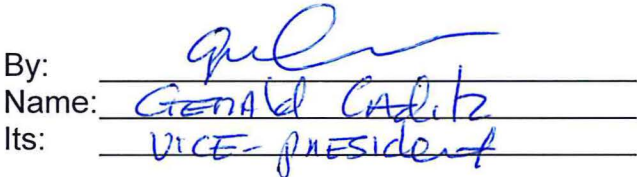 By:
Name: GERALD CADITZ
Its: VICE-PRESIDENT